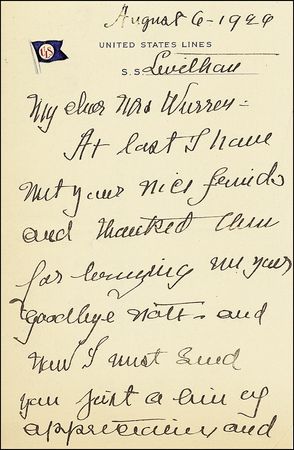 August 6-1929
UNITED STATES LINES
S.S. Levithan
My dear Mrs Warren -
At last I have
met your nice friends
and thanked them
for bringing me your
"goodbye" note - and
now I must send
you just a line of
appreciation and